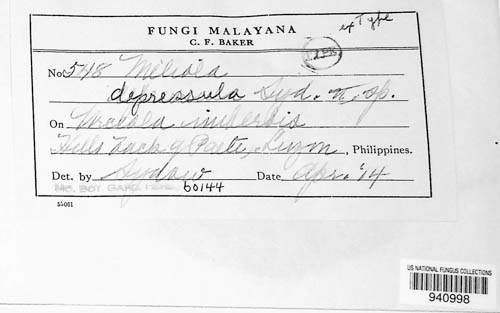 ex Type
FUNGI MALAYANA
C. F. BAKER
No. 548 Meliola
depressula Syd. n. sp.
On imberbis
Hills back of Paete, Luzon, Philippines.
Det. by Sydow Date Apr. '14
MO. BOT. GARD. HERB. 60144
51061
US NATIONAL FUNGUS COLLECTIONS
940998